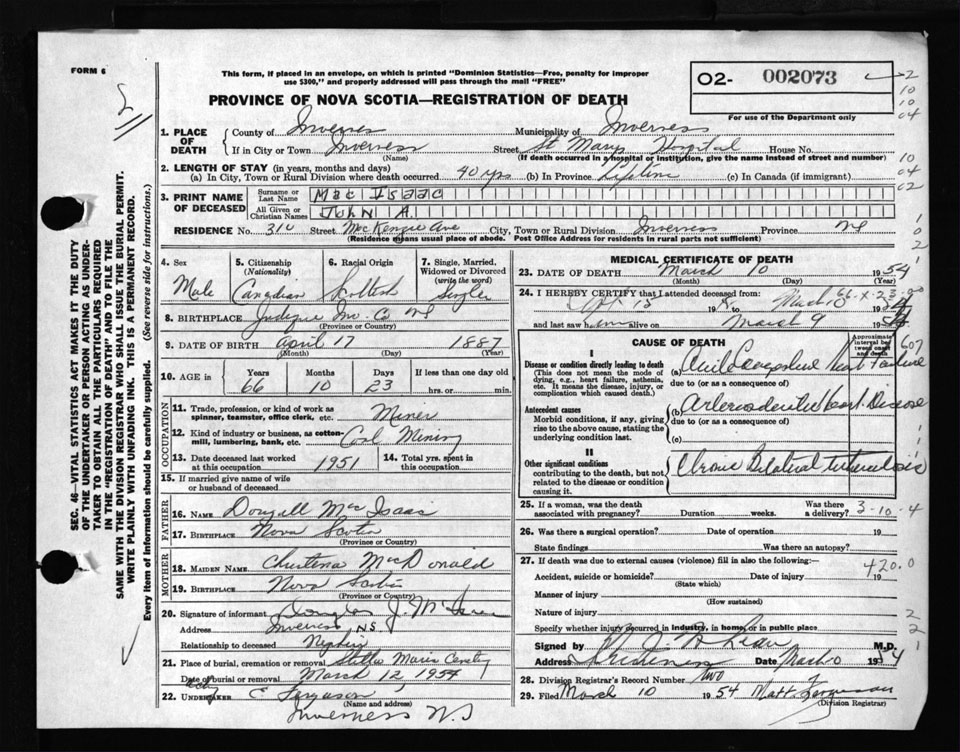 FORM 6
This form, if placed in an envelope, on which is printed "Dominion Statistics—Free, penalty for improper
use $300," and properly addressed will pass through the mail "FREE"
O2- 002073
For use of the Department only
PROVINCE OF NOVA SCOTIA—REGISTRATION OF DEATH
1. PLACE OF DEATH { County of Inverness Municipality of Inverness
If in City or Town Inverness Street St Marys Hospital House No.
(Name) (If death occurred in a hospital or institution, give the name instead of street and number)
2. LENGTH OF STAY (in years, months and days)
(a) In City, Town or Rural Division where death occurred 40 yrs (b) In Province Lifetime (c) In Canada (if immigrant)
3. PRINT NAME OF DECEASED
Surname or Last Name Mac Isaac
All Given or Christian Names JOHN A.
RESIDENCE No. 310 Street McKenzie Ave City, Town or Rural Division Inverness Province NS
(Residence means usual place of abode. Post Office Address for residents in rural parts not sufficient)
4. Sex Male
5. Citizenship (Nationality) Canadian
6. Racial Origin Scottish
7. Single, Married, Widowed or Divorced (write the word) Single
8. BIRTHPLACE Judique Inv. Co NS
(Province or Country)
9. DATE OF BIRTH April 17 1887
(Month) (Day) (Year)
10. AGE in Years 66 Months 10 Days 23 If less than one day old hrs. or min.
OCCUPATION
11. Trade, profession, or kind of work as spinner, teamster, office clerk, etc. Miner
12. Kind of industry or business, as cotton-mill, lumbering, bank, etc. Coal Mining
13. Date deceased last worked at this occupation 1951 14. Total yrs. spent in this occupation
15. If married give name of wife or husband of deceased
FATHER
16. NAME Mac Isaac
17. BIRTHPLACE Nova Scotia
(Province or Country)
MOTHER
18. MAIDEN NAME Christena MacDonald
19. BIRTHPLACE Nova Scotia
(Province or Country)
20. Signature of informant Douglas J.
Address Inverness N.S.
Relationship to deceased Nephew
21. Place of burial, cremation or removal Stella Maris Cemetery
Date of burial or removal March 12, 1954
22. UNDERTAKER C Ferguson
(Name and address)
Inverness N.S
MEDICAL CERTIFICATE OF DEATH
23. DATE OF DEATH March 10 1954
(Month) (Day) (Year)
24. I HEREBY CERTIFY that I attended deceased from:
66-X-23
and last saw him alive on March 9 19
CAUSE OF DEATH
Approximate interval between onset and death
607
I
Disease or condition directly leading to death
(This does not mean the mode of dying, e.g., heart failure, asthenia, etc. It means the disease, injury, or complication which caused death.)
(a) Congestive Heart Failure
due to (or as a consequence of)
Antecedent causes
Morbid conditions, if any, giving rise to the above cause, stating the underlying condition last.
(b) Arteriosclerotic Heart Disease
due to (or as a consequence of)
(c)
II
Other significant conditions
contributing to the death, but not related to the disease or condition causing it.
Chronic Bilateral tuberculosis
25. If a woman, was the death associated with pregnancy? Duration weeks. Was there a delivery?
3-10-4
26. Was there a surgical operation? Date of operation 19
State findings Was there an autopsy?
27. If death was due to external causes (violence) fill in also the following:—
420.0
Accident, suicide or homicide? Date of injury 19
(State which)
Manner of injury
(How sustained)
Nature of injury
Specify whether injury occurred in industry, in home, or in public place
Signed by M.D.
Address Date March 10 1954
28. Division Registrar's Record Number two
29. Filed March 10 1954 Matt. Ferguson
(Division Registrar)
SEC. 46—VITAL STATISTICS ACT MAKES IT THE DUTY
OF THE UNDERTAKER OR PERSON ACTING AS UNDER-
TAKER TO OBTAIN ALL THE PARTICULARS REQUIRED
IN THE "REGISTRATION OF DEATH" AND TO FILE THE
SAME WITH THE DIVISION REGISTRAR WHO SHALL ISSUE THE BURIAL PERMIT.
WRITE PLAINLY WITH UNFADING INK. THIS IS A PERMANENT RECORD.
Every item of information should be carefully supplied. (See reverse side for instructions.)